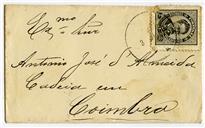 Ex.mo Snr
Antonio José d'Almeida
Cadeia em
Coimbra